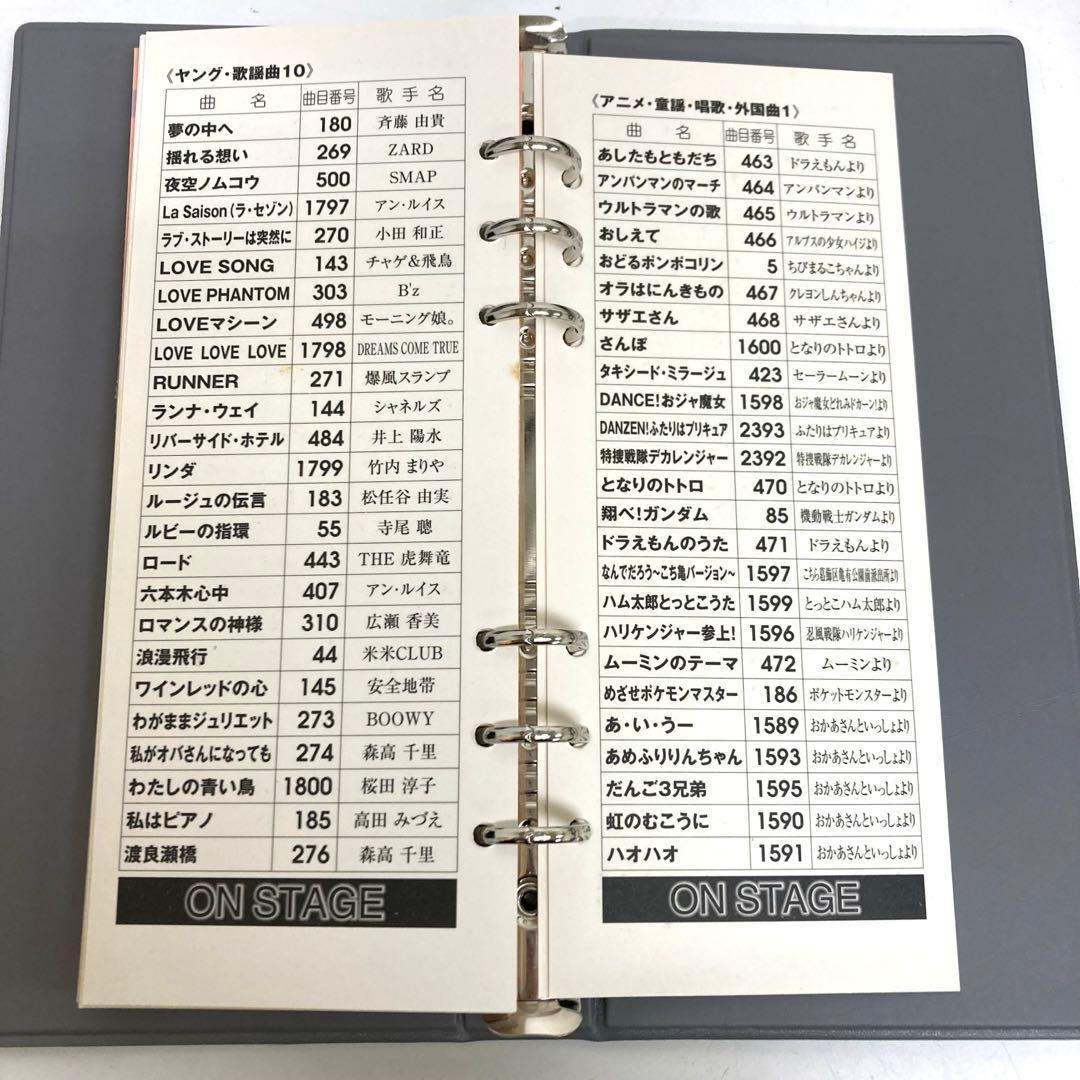 《ヤング・歌謡曲10》
曲名 曲目番号 歌手名
夢の中へ 180 斉藤 由貴
揺れる想い 269 ZARD
夜空ノムコウ 500 SMAP
La Saison(ラ・セゾン) 1797 アン・ルイス
ラブ・ストーリーは突然に 270 小田 和正
LOVE SONG 143 チャゲ&飛鳥
LOVE PHANTOM 303 B'z
LOVEマシーン 498 モーニング娘。
LOVE LOVE LOVE 1798 DREAMS COME TRUE
RUNNER 271 爆風スランプ
ランナ・ウェイ 144 シャネルズ
リバーサイド・ホテル 484 井上 陽水
リンダ 1799 竹内 まりや
ルージュの伝言 183 松任谷 由実
ルビーの指環 55 寺尾 聰
ロード 443 THE 虎舞竜
六本木心中 407 アン・ルイス
ロマンスの神様 310 広瀬 香美
浪漫飛行 44 米米CLUB
ワインレッドの心 145 安全地帯
わがままジュリエット 273 BOOWY
私がオバさんになっても 274 森高 千里
わたしの青い鳥 1800 桜田 淳子
私はピアノ 185 高田 みづえ
渡良瀬橋 276 森高 千里
ON STAGE
《アニメ・童謡・唱歌・外国曲1》
曲名 曲目番号 歌手名
あしたもともだち 463 ドラえもんより
アンパンマンのマーチ 464 アンパンマンより
ウルトラマンの歌 465 ウルトラマンより
おしえて 466 アルプスの少女ハイジより
おどるポンポコリン 5 ちびまるこちゃんより
オラはにんきもの 467 クレヨンしんちゃんより
サザエさん 468 サザエさんより
さんぽ 1600 となりのトトロより
タキシード・ミラージュ 423 セーラームーンより
DANCE!おジャ魔女 1598 おジャ魔女どれみドカーン!より
DANZEN!ふたりはプリキュア 2393 ふたりはプリキュアより
特捜戦隊デカレンジャー 2392 特捜戦隊デカレンジャーより
となりのトトロ 470 となりのトトロより
翔べ!ガンダム 85 機動戦士ガンダムより
ドラえもんのうた 471 ドラえもんより
なんでだろう~こち亀バージョン~ 1597 こちら葛飾区亀有公園前派出所より
ハム太郎とっとこうた 1599 とっとこハム太郎より
ハリケンジャー参上! 1596 忍風戦隊ハリケンジャーより
ムーミンのテーマ 472 ムーミンより
めざせポケモンマスター 186 ポケットモンスターより
あ・い・うー 1589 おかあさんといっしょより
あめふりりんちゃん 1593 おかあさんといっしょより
だんご3兄弟 1595 おかあさんといっしょより
虹のむこうに 1590 おかあさんといっしょより
ハオハオ 1591 おかあさんといっしょより
ON STAGE